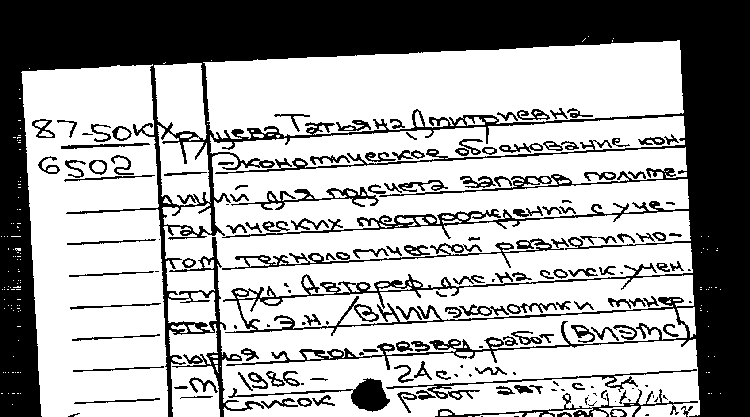 87-50к Хрящева, Татьяна Дмитриевна
6502 Экономическое обоснование кон-
диций для подсчета запасов полиме-
таллических месторождений с уче-
том технологической разнотипно-
сти руд: Автореф. дис. на соиск. учен.
степ. к.э.н. / ВНИИ экономики минер.
сырья и геол.-развед. работ (ВИЭМС)
-М, 1986.- 24 с.: ил.
Список работ авт.: с. 24.